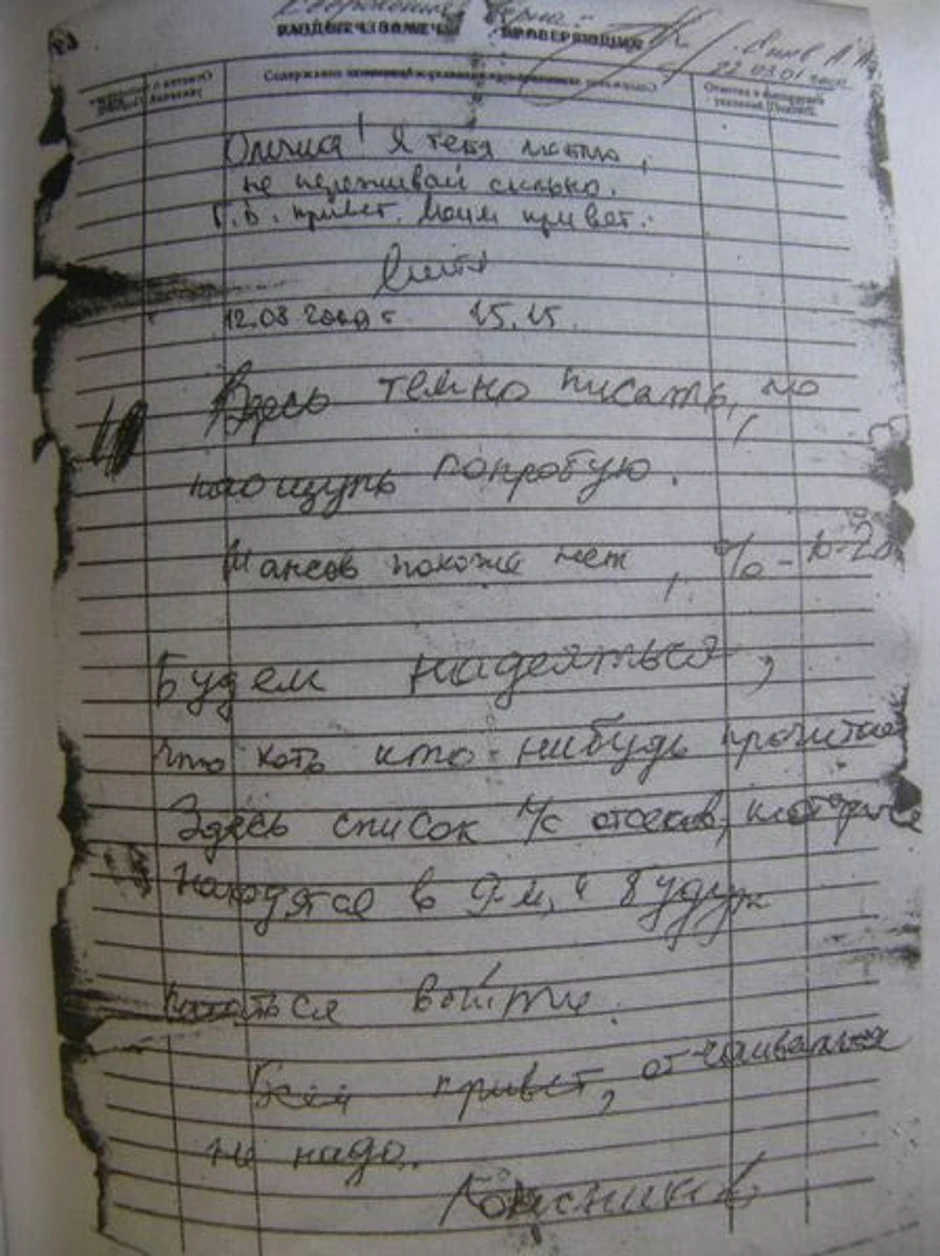 Олечка! Я тебя люблю,
не переживай сильно.
Г.В. привет. Моим привет.
Митя
12.08.2000 г. 15.15.
Здесь темно писать, но
наощупь попробую.
Шансов похоже нет, % - 10-20
Будем надеяться,
что хоть кто-нибудь прочитает
Здесь список л/с отсеков, которые
находятся в 9-м, и будут
пытаться выйти.
Всем привет, отчаиваться
не надо.
Колесников